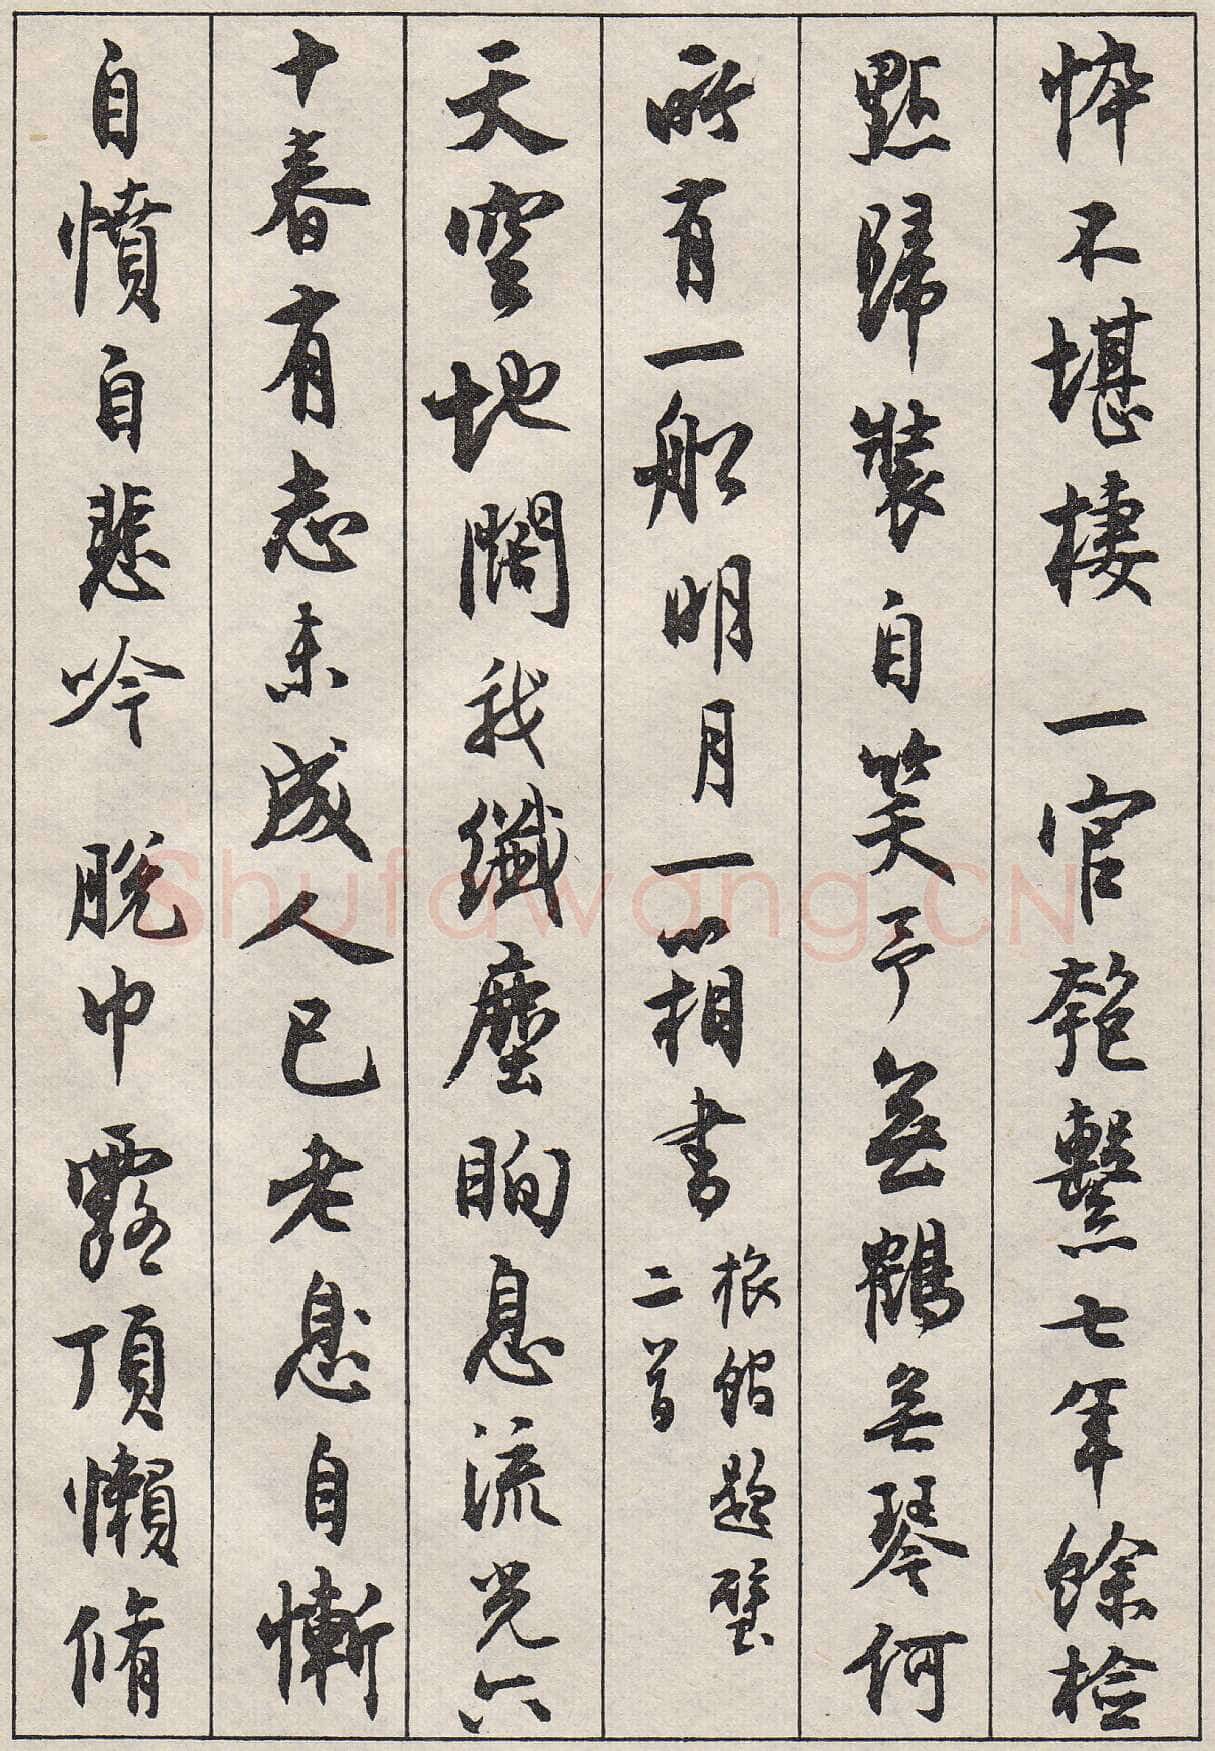 悴不堪棲一官匏繫七年餘檢
點歸裝自笑予無鶴無琴何
所有一船明月一箱書
旅館題壁
二首
天空地闊我纖塵眴息流光六
十春有志未成人已老息自慚
自憤自悲吟脫巾露頂懶脩
Shufawang.CN